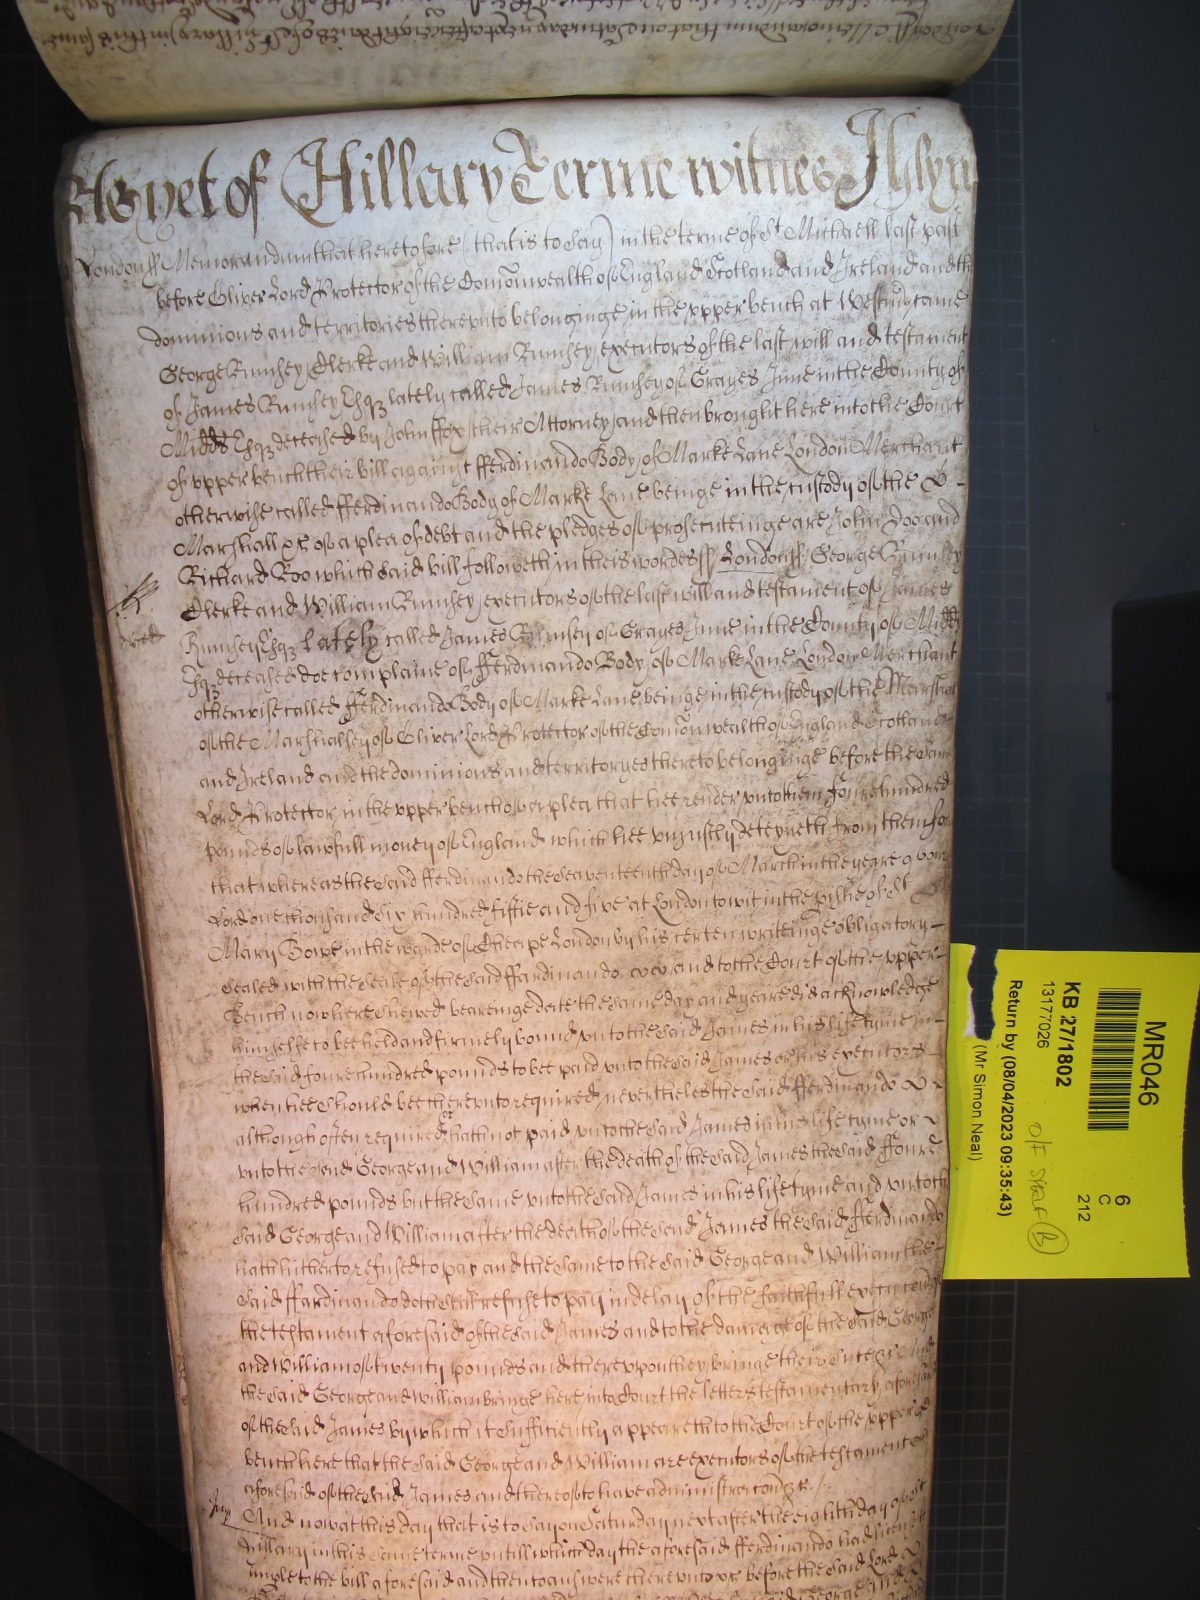 As yet of Hillary Terme witnes
London ss Memorandum that heretofore (that is to say) in the terme of St Michaell last past
before Oliver Lord Protector of the Comonwealth of England Scotland and Ireland and the
dominions and territories thereunto belonginge in the upper bench at Westmr came
George Rumsey Clerke and William Rumsey executors of the last will and testament
of James Rumsey Esqz lately called James Rumsey of Grayes Inne in the County of
Midds Esqz deceased by John ffox their Attorney and then brought here into the Court
of upper bench their bill against fferdinando Body of Marke Lane London Merchant
otherwise called fferdinando Body of Marke Lane beinge in the custody of the
Marshall &c of a plea of debt and the pledges of prosecuteinge are John Doo and
Richard Roo which said bill followeth in theis wordes ss London ss George Rumsey
Clerke and William Rumsey executors of the last will and testament of James
Rumsey Esqz lately called James Rumsey of Grayes Inne in the County of Midds
Esqz deceased doe complaine of fferdinando Body of Marke Lane London Merchant
otherwise called fferdinando Body of Marke Lane beinge in the custody of the Marshall
of the Marshalsey of Oliver Lord Protector of the Comonwealth of England Scotland
and Ireland and the dominions and territoryes thereto belonginge before the said
Lord Protector in the upper bench of a plea that hee render unto them foure hundred
pounds of lawfull money of England which hee uniustly deteyneth from them for
that whereas the said fferdinando the seaventeenth day of March in the yeare of our
Lord one thousand six hundred fiftie and five at London to wit in the pishe of St
Mary Bowe in the warde of Cheape London by his certen writeinge obligatory
sealed with the seale of the said ffardinando and to the Court of the upper
bench now here shewed beareinge date the same day and yeare did acknowledge
himselfe to bee held and firmely bound unto the said James in his life tyme in
the said foure hundred pounds to bee paid unto the said James or his executors
when hee should bee thereunto required neverthelesse the said fferdinando
although often required hath not paid unto the said James in his life tyme or
unto the said George and William after the death of the said James the said ffoure
hundred pounds but the same unto the said James in his life tyme and unto the
said George and William after the death of the said James the said fferdinando
hath hitherto refused to pay and the same to the said George and William the
said ffardinando doth still refuse to pay in delay of the faithfull execution of
the testament aforesaid of the said James and to the damage of the said George
and William of twenty pounds and thereupon they bringe their sute &c And
the said George and William bringe here into Court the letters testamentary aforesaid
of the said James by which it sufficiently appeareth to the Court of the upper
bench here that the said George and William are executors of the testament
aforesaid of the said James and thereof to have administracon &c
And now at this day that is to say on Saturday next after the eighth day of St
Hillary in this same terme untill which day the aforesaid fferdinando had licence to
imple to the bill aforesaid and then to answere thereunto &c before the said Lord
MR046
KB 27/1802
13177026
Return by (08/04/2023 09:35:43)
(Mr Simon Neal)
6
C
212
O/F SHELF (B)